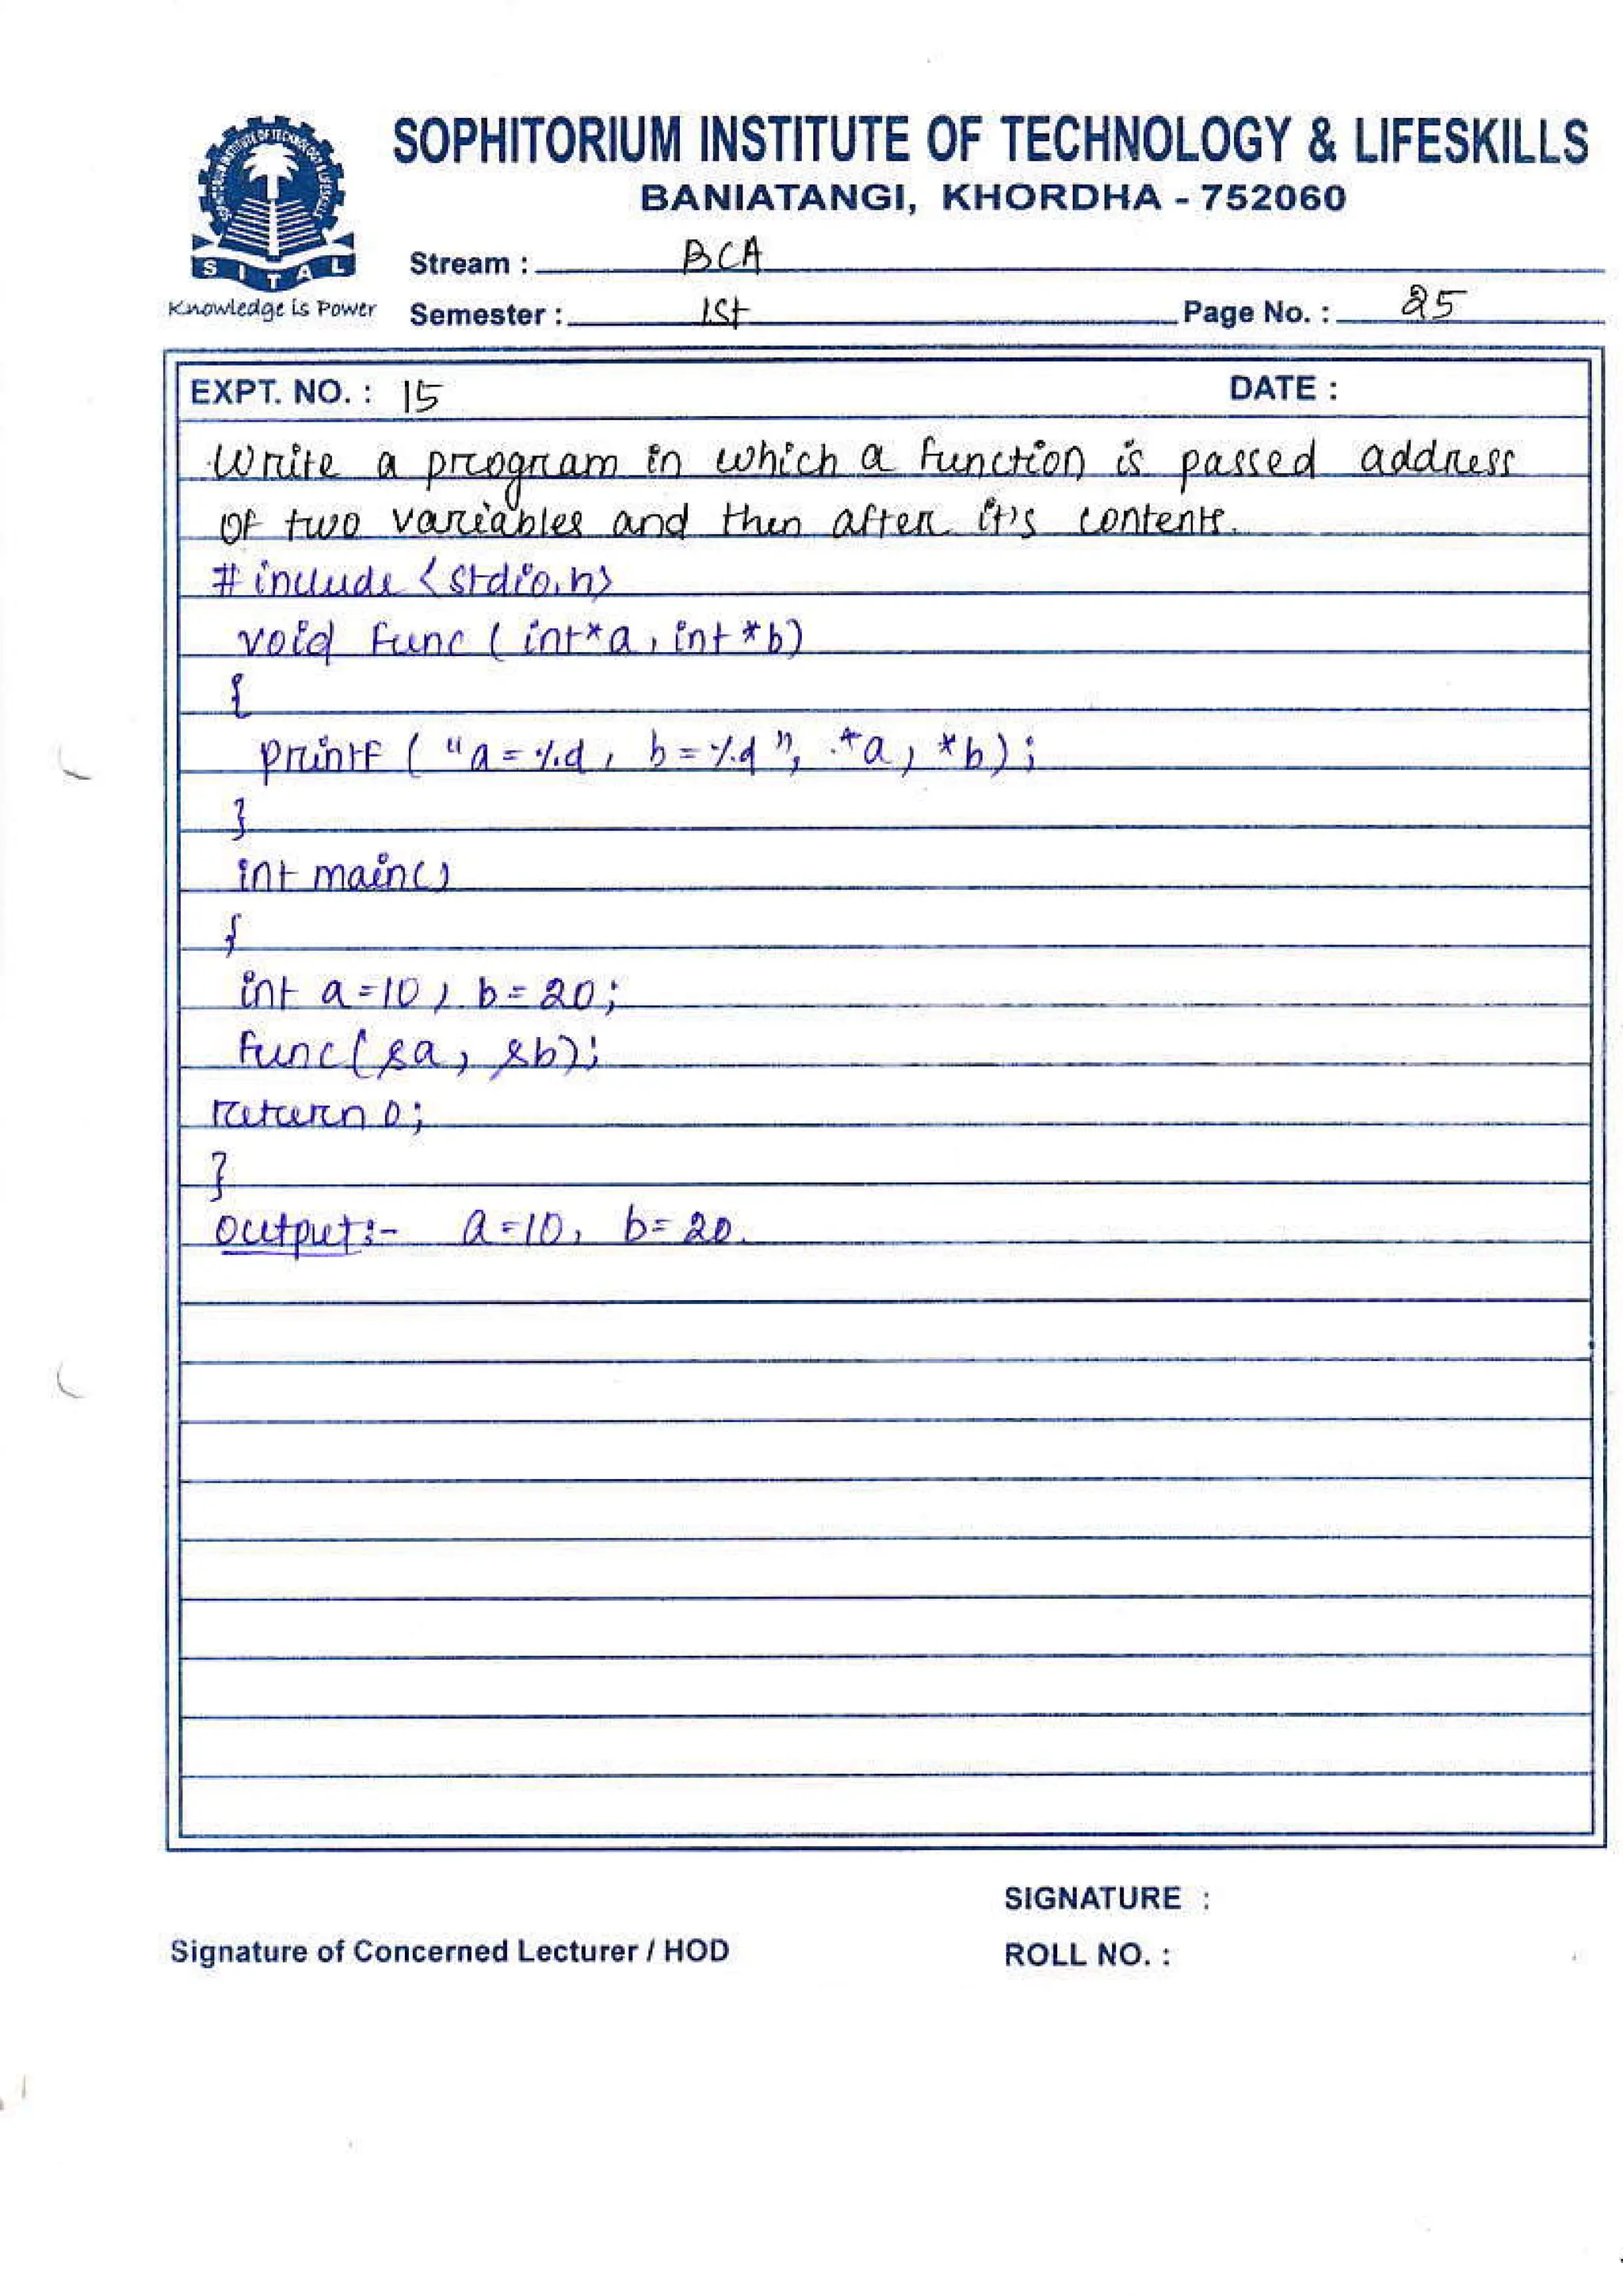 SOPHITORIUM INSTITUTE OF TECHNOLOGY & LIFESKILLS
BANIATANGI, KHORDHA - 752060
SITAL
Knowledge is Power
Stream : BCA
Semester : 1st Page No. : 25
EXPT. NO. : 15 DATE :
Write a program in which a function is passed address
of two variables and then after it's contents.
#include <stdio.h>
void func (int*a, int *b)
{
printf ("a=%d, b=%d", *a, *b);
}
int main()
{
int a=10, b=20;
func(&a, &b);
return 0;
}
output:- a=10, b=20.
SIGNATURE :
Signature of Concerned Lecturer / HOD
ROLL NO. :